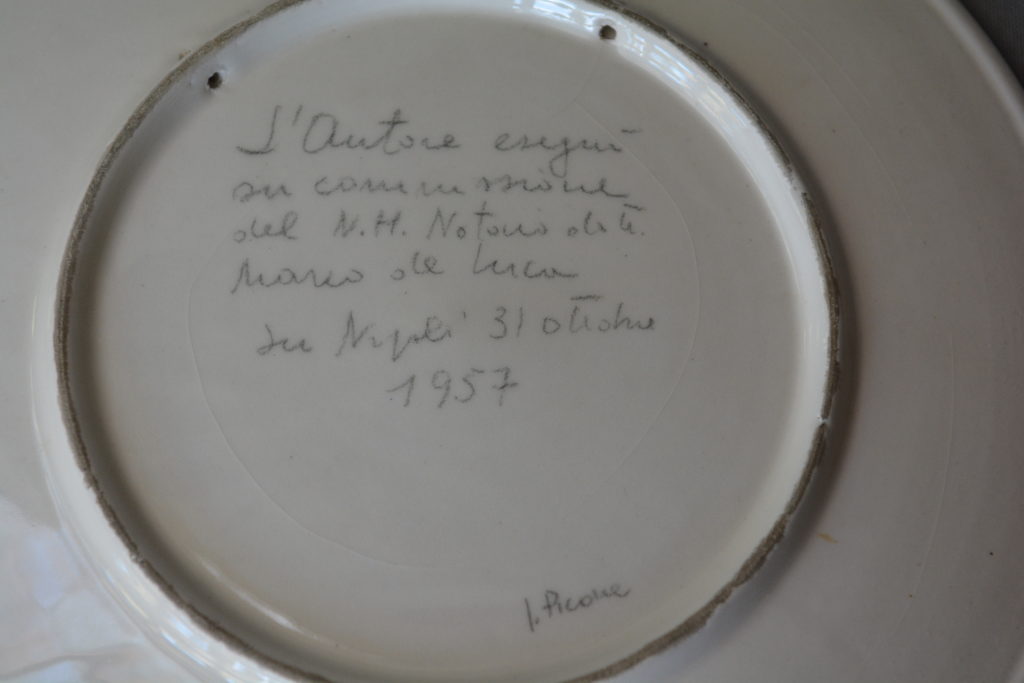 L'Autore eseguì
su commissione
del N.H. Notaio dott.
Marco de Luca
su Napoli 31 ottobre
1957
J. Picone